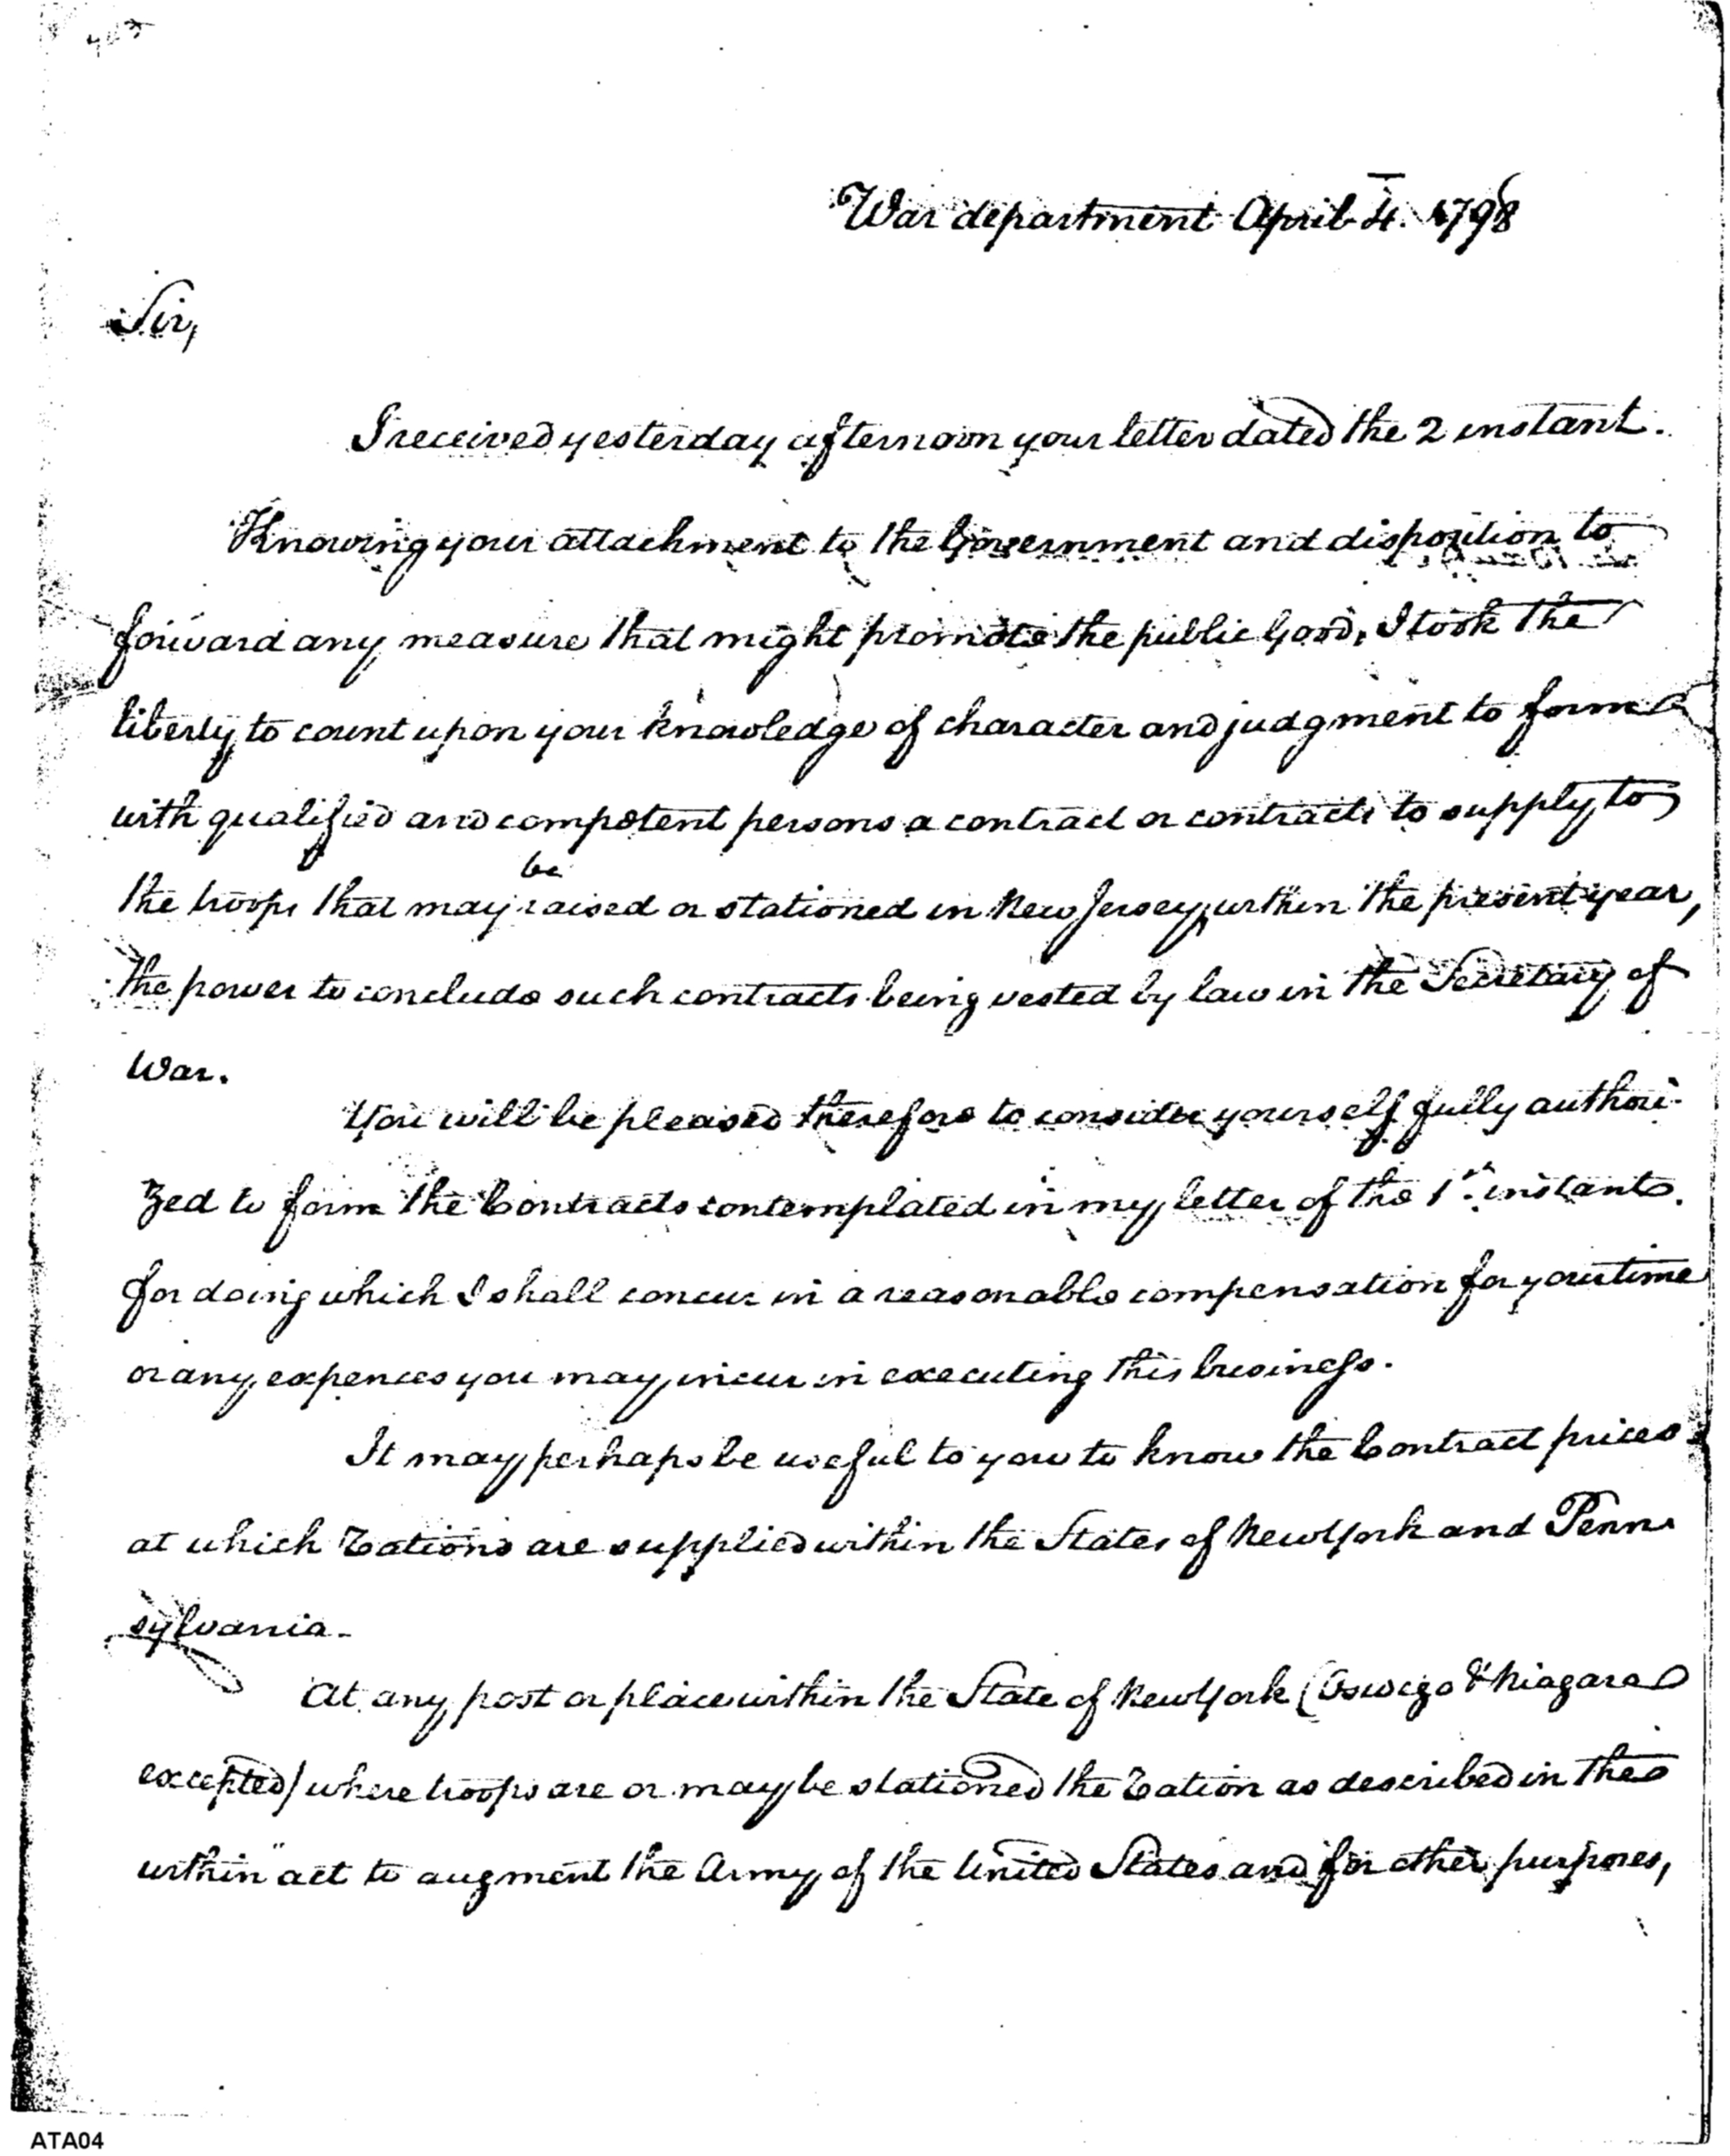 War department April 4. 1798
Sir,
I received yesterday afternoon your letter dated the 2 instant.
Knowing your attachment to the Government and disposition to
forward any measure that might promote the public Good, I took the
liberty to count upon your knowledge of character and judgment to form
with qualified and competent persons a contract or contracts to supply to
be
the troops that may raised or stationed in New Jersey, within the present year,
the power to conclude such contracts being vested by law in the Secretary of
War.
You will be pleased therefore to consider yourself fully authori-
zed to form the Contracts contemplated in my letter of the 1st. instant.
for doing which I shall concur in a reasonable compensation for your time
or any expences you may incur in executing this business.
It may perhaps be useful to you to know the Contract prices
at which Rations are supplied within the States of New York and Penn
sylvania-
At any post or place within the State of New York (Oswego & Niagara
excepted) where troops are or may be stationed the Ration as described in the
within "act to augment the Army of the United States and for other purposes,
ATA04